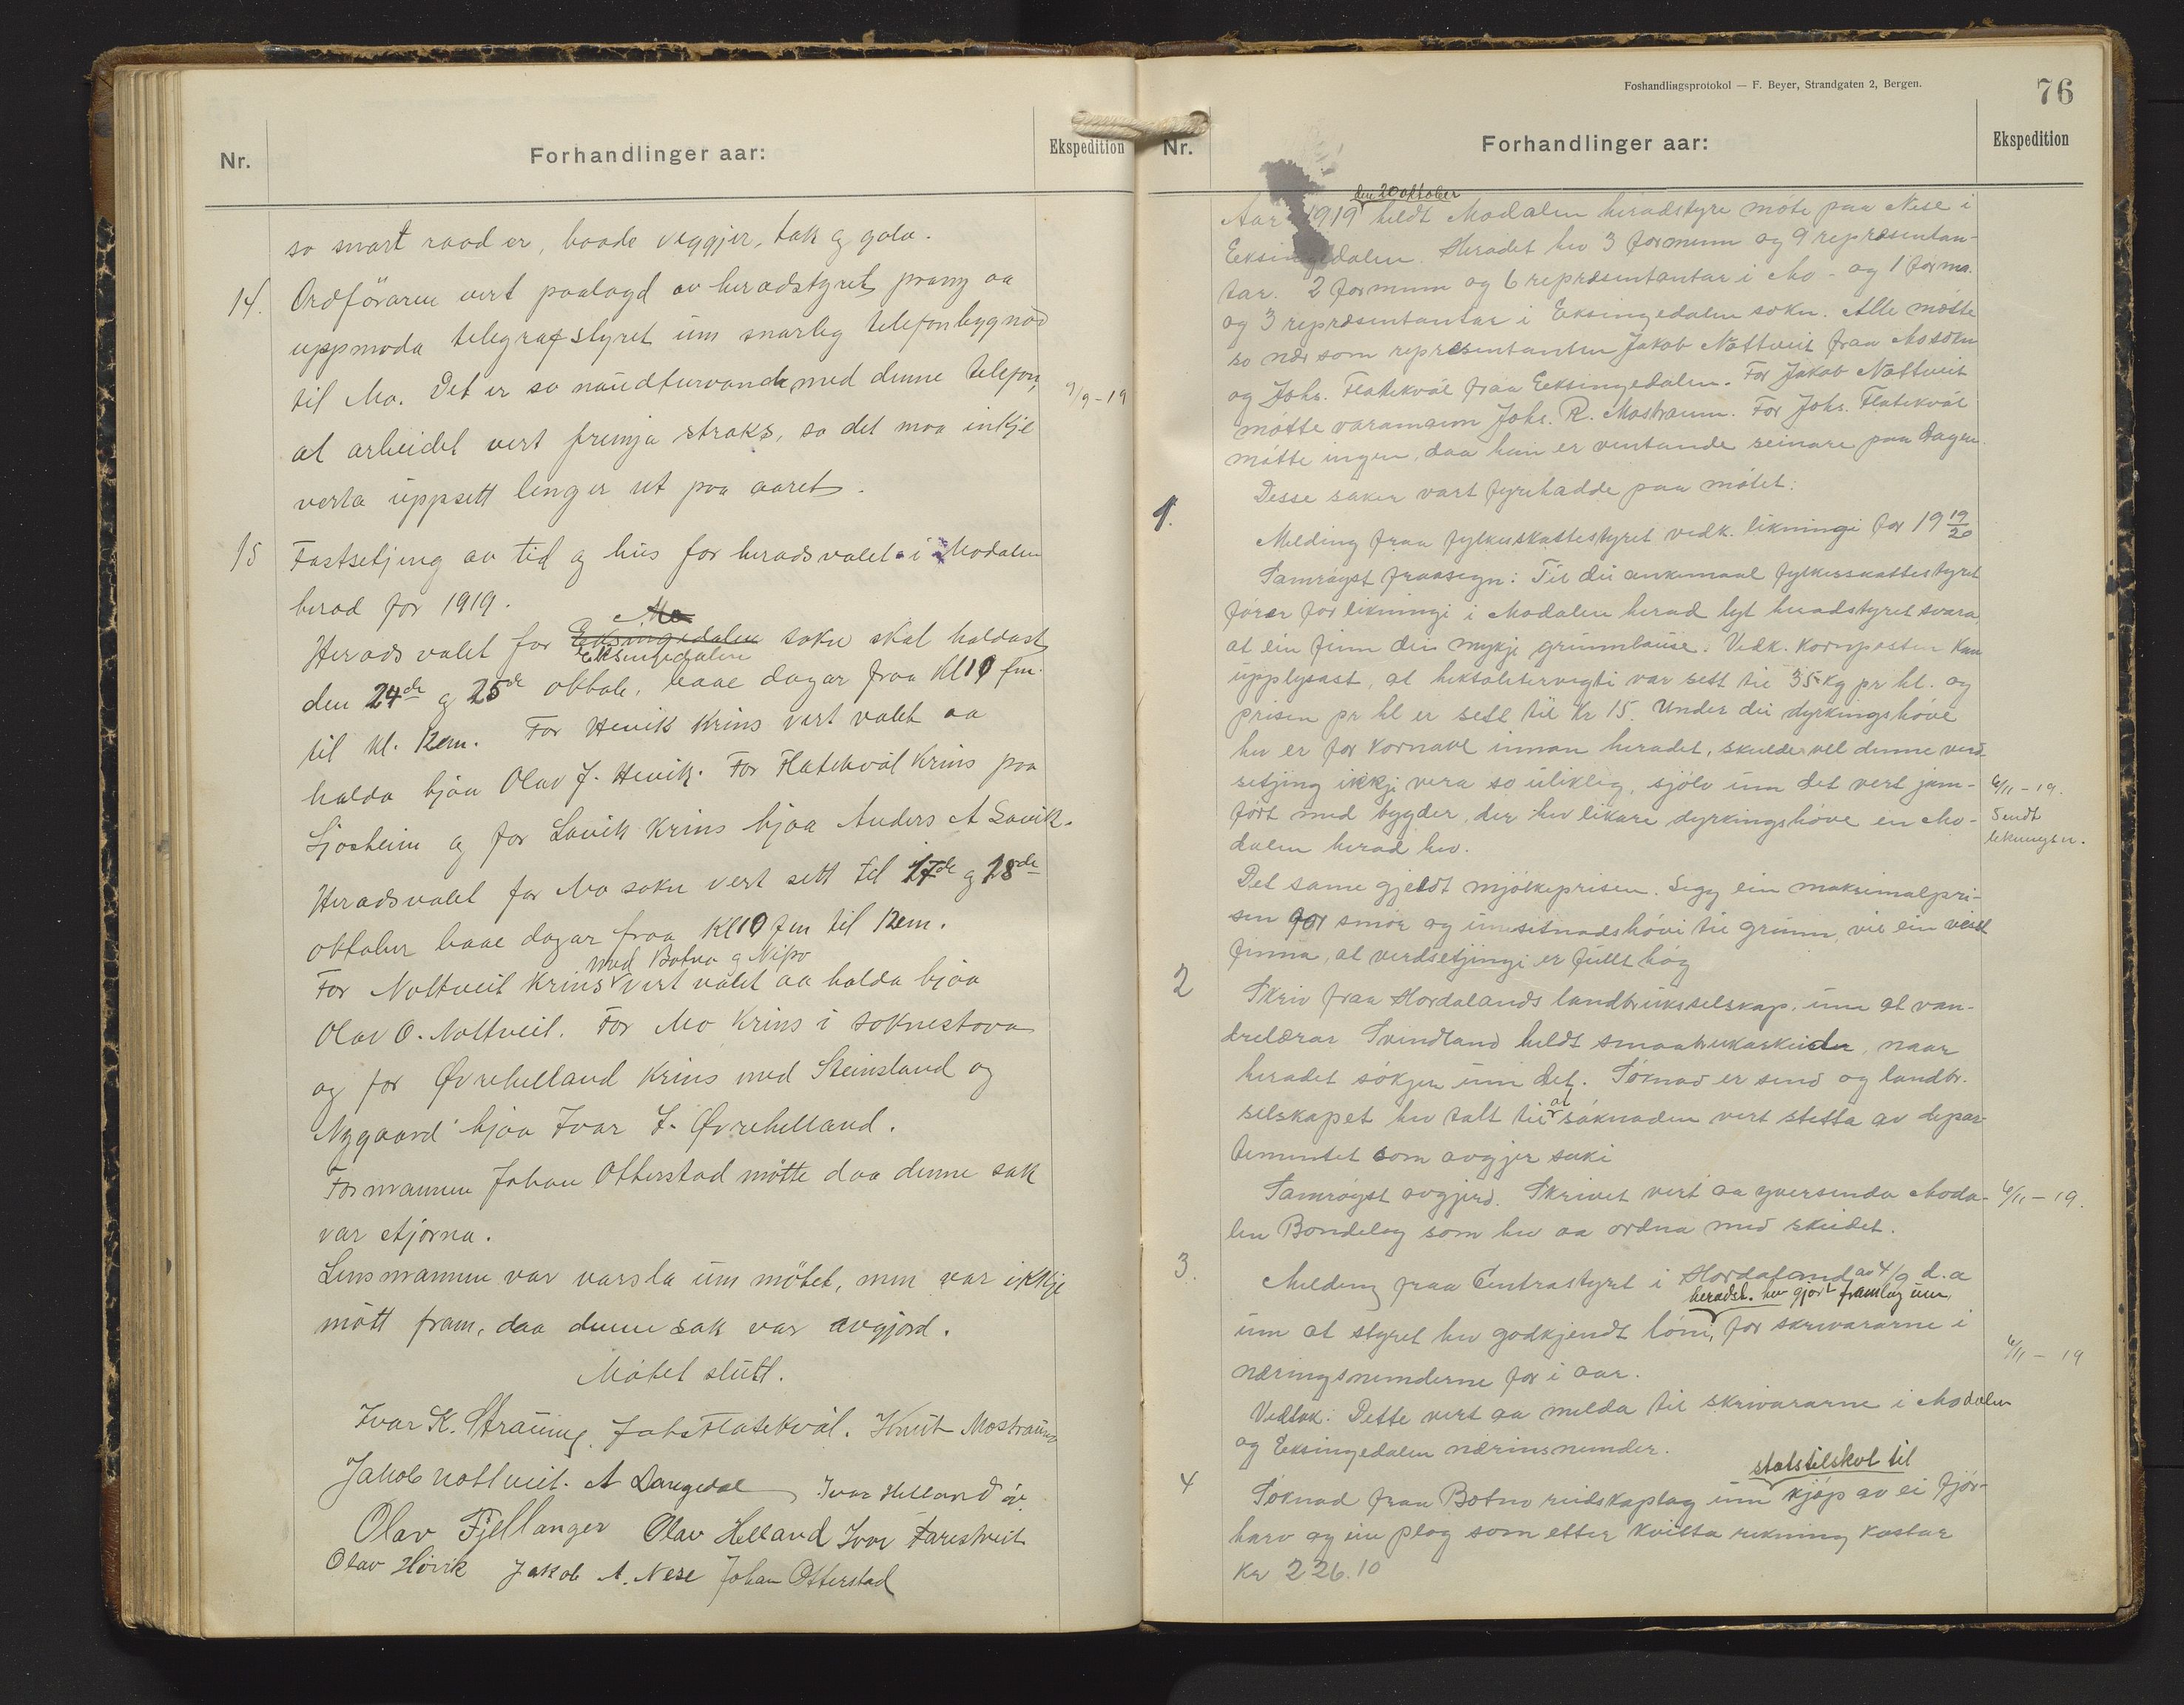 Nr.
Forhandlinger aar:
Ekspedition
so snart raad er, baade veggjer, tak og golv.
14. Ordføraren vert paalagd av heradstyret paany aa
uppmoda telegrafstyret um snarleg telefonbygnad
til Mo. Det er so naudturvande med denne telefon, 9/9-19
at arbeidet vert fremja straks, so det maa inkje
verta uppsett lenger ut paa aaret.
15 Fastsetjing av tid og hus for heradsvalet i Modalen
herad for 1919.
Mo
Heradsvalet for Eksingedalen sokn skal haldast
Eksingedalen
den 24de og 25de oktob. baae dagar fraa Kl 10 fm.
til kl. 12em. For Høvik Krins vert valet aa
halda hjaa Olav J. Høvik. For Flatekvål Krins paa
Sjosheim og for Lavik Krins hjaa Anders A Lavik.
Heradsvalet for Mo sokn vert sett til 17de og 18de
oktober baae dagar fraa Kl 10 fm til 12em.
med Botno og Nipo
For Nottveit Krins vert valet aa halda hjaa
Olav O. Nottveit. For Mo Krins i soknestova
og for Øvrehelland Krins med Steinsland og
Nygaard hjaa Ivar I. Øvrehelland.
Formannen Johan Otterstad møtte daa denne sak
var avgjorna.
Lensmannen var varsla um møtet, men var ikkje
møtt fram, daa denne sak var avgjord.
Møtet slutt.
Ivar K. Straume. Johs Flatekvål. Knut Mostraum
Jakob Nottveit. A Dangedal Ivar Helland
Olav Fjellanger Olav Helland Ivar Farestveit
Olav Høvik Jakob A. Nese Johan Otterstad
Foshandlingsprotokol — F. Beyer, Strandgaten 2, Bergen.
76
Nr.
Forhandlinger aar:
Ekspedition
den 20 oktober
Aar 1919 heldt Modalen heradstyre møte paa Nese i
Eeksingedalen. Heradet hev 3 formenn og 9 representan-
tar. 2 formenn og 6 representantar i Mo- og 1 forma.
og 3 representantar i Eeksingedalen sokn. Alle møtte
so nær som representanten Jakob Nottveit fraa Mosokn
og Johs. Flatekvål fraa Eeksingedalen. For Jakob Nottveit
møtte varamann Johs. R. Mostraum. For Johs. Flatekvål
møtte ingen, daa han er ventande seinare paa dagen.
Desse saker vart fyrehadde paa møtet:
1. Melding fraa fylkesskattestyret vedk. likningi for 19 19/20
Samrøyst fraasegn: Til dei ankemaal fylkesskattestyret
fører for likningi i Modalen herad lyt heradstyret svara,
at ein finn dei mykje grunnlause. Vedk. kornposten kan
upplysast, at hektolitervegti var sett til 35 kg pr hl. og
prisen pr hl er sett til Kr 15. Under dei dyrkingshøve
hev er for kornavl innan heradet, skulde vel denne verd-
setjing ikkje vera so uliklig, sjølv um det vert jam- 6/11-19.
ført med bygder, der hev likare dyrkingshøve en Mo- Sendt
dalen herad hev. likningsn.
Det same gjeldt mjølkeprisen. Legg ein maksimalpri-
sen for smør og umsetnadshøvi til grunn, vil ein visst
finna, at verdsetjingi er fullt høg
2 Skriv fraa Hordalands landbruksselskap, um at van-
drelærar Svindland heldt smaabrukarskeider, naar
heradet søkjer um det. Søknad er send og landbr.
selskapet hev talt til at søknaden vert støtta av depar-
tementet som avgjer saki
Samrøyst avgjerd. Skrivet vert aa yversenda Moda- 6/11-19.
len Bondelag som hev aa ordna med skeidet.
3. Melding fraa Centrastyret i Hordaland av 4/9 d.a
heradst. hev gjort framlag um,
um at styret hev godkjendt løni, for skrivararne i
næringsnemderne for i aar. 6/11-19
Vedtak: Dette vert aa melda til skrivararne i Modalen
og Eeksingedalen næringsnemder.
statstilskot til
4 Søknad fraa Botno reidskaplag um kjøp av ei fjør-
harv og ein plog som etter kvitta rekning kostar
Kr 226.10